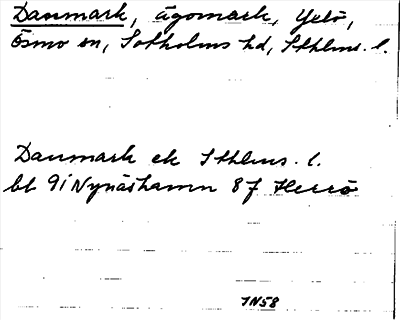 Danmark, ägomark, Yxlö,
Ösmo sn, Sotholms hd, Sthlms. l.
Danmark ek Sthlms. l.
bl 9i Nynäshamn 8f Herrö
IN58